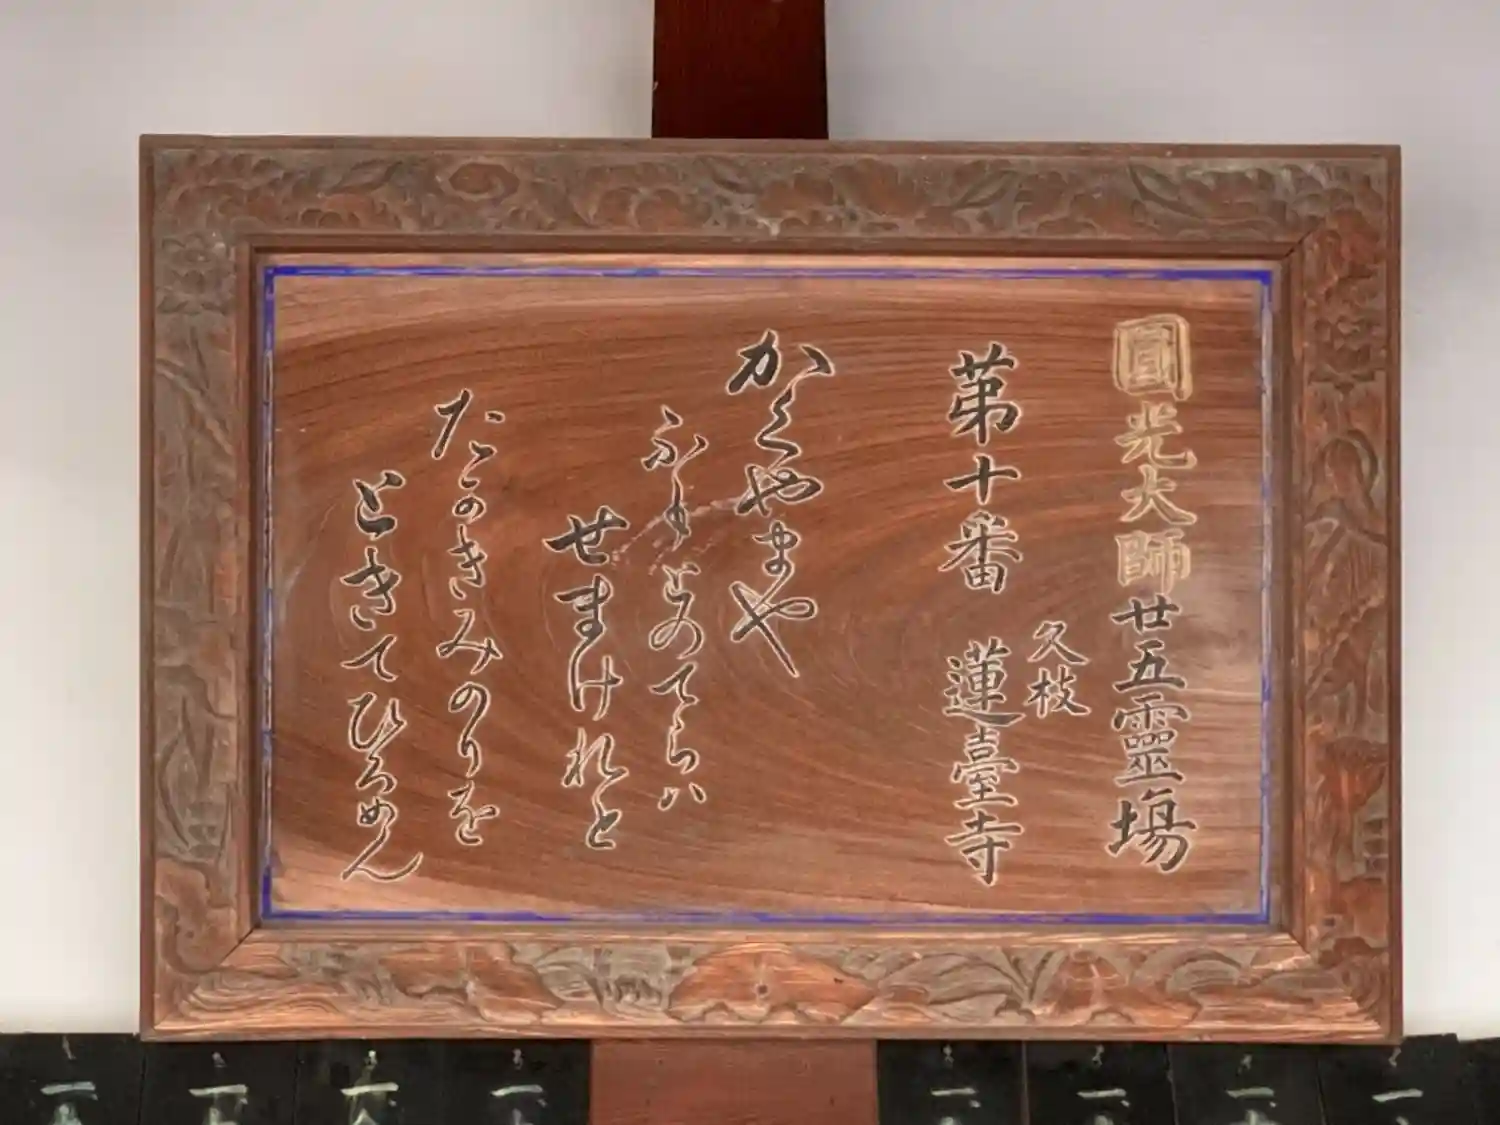 圓光大師廿五靈場
久枝
第十番 蓮臺寺
かくやまや
ふもとのてらハ
せまけれと
たかきみのりを
ときてひろめん